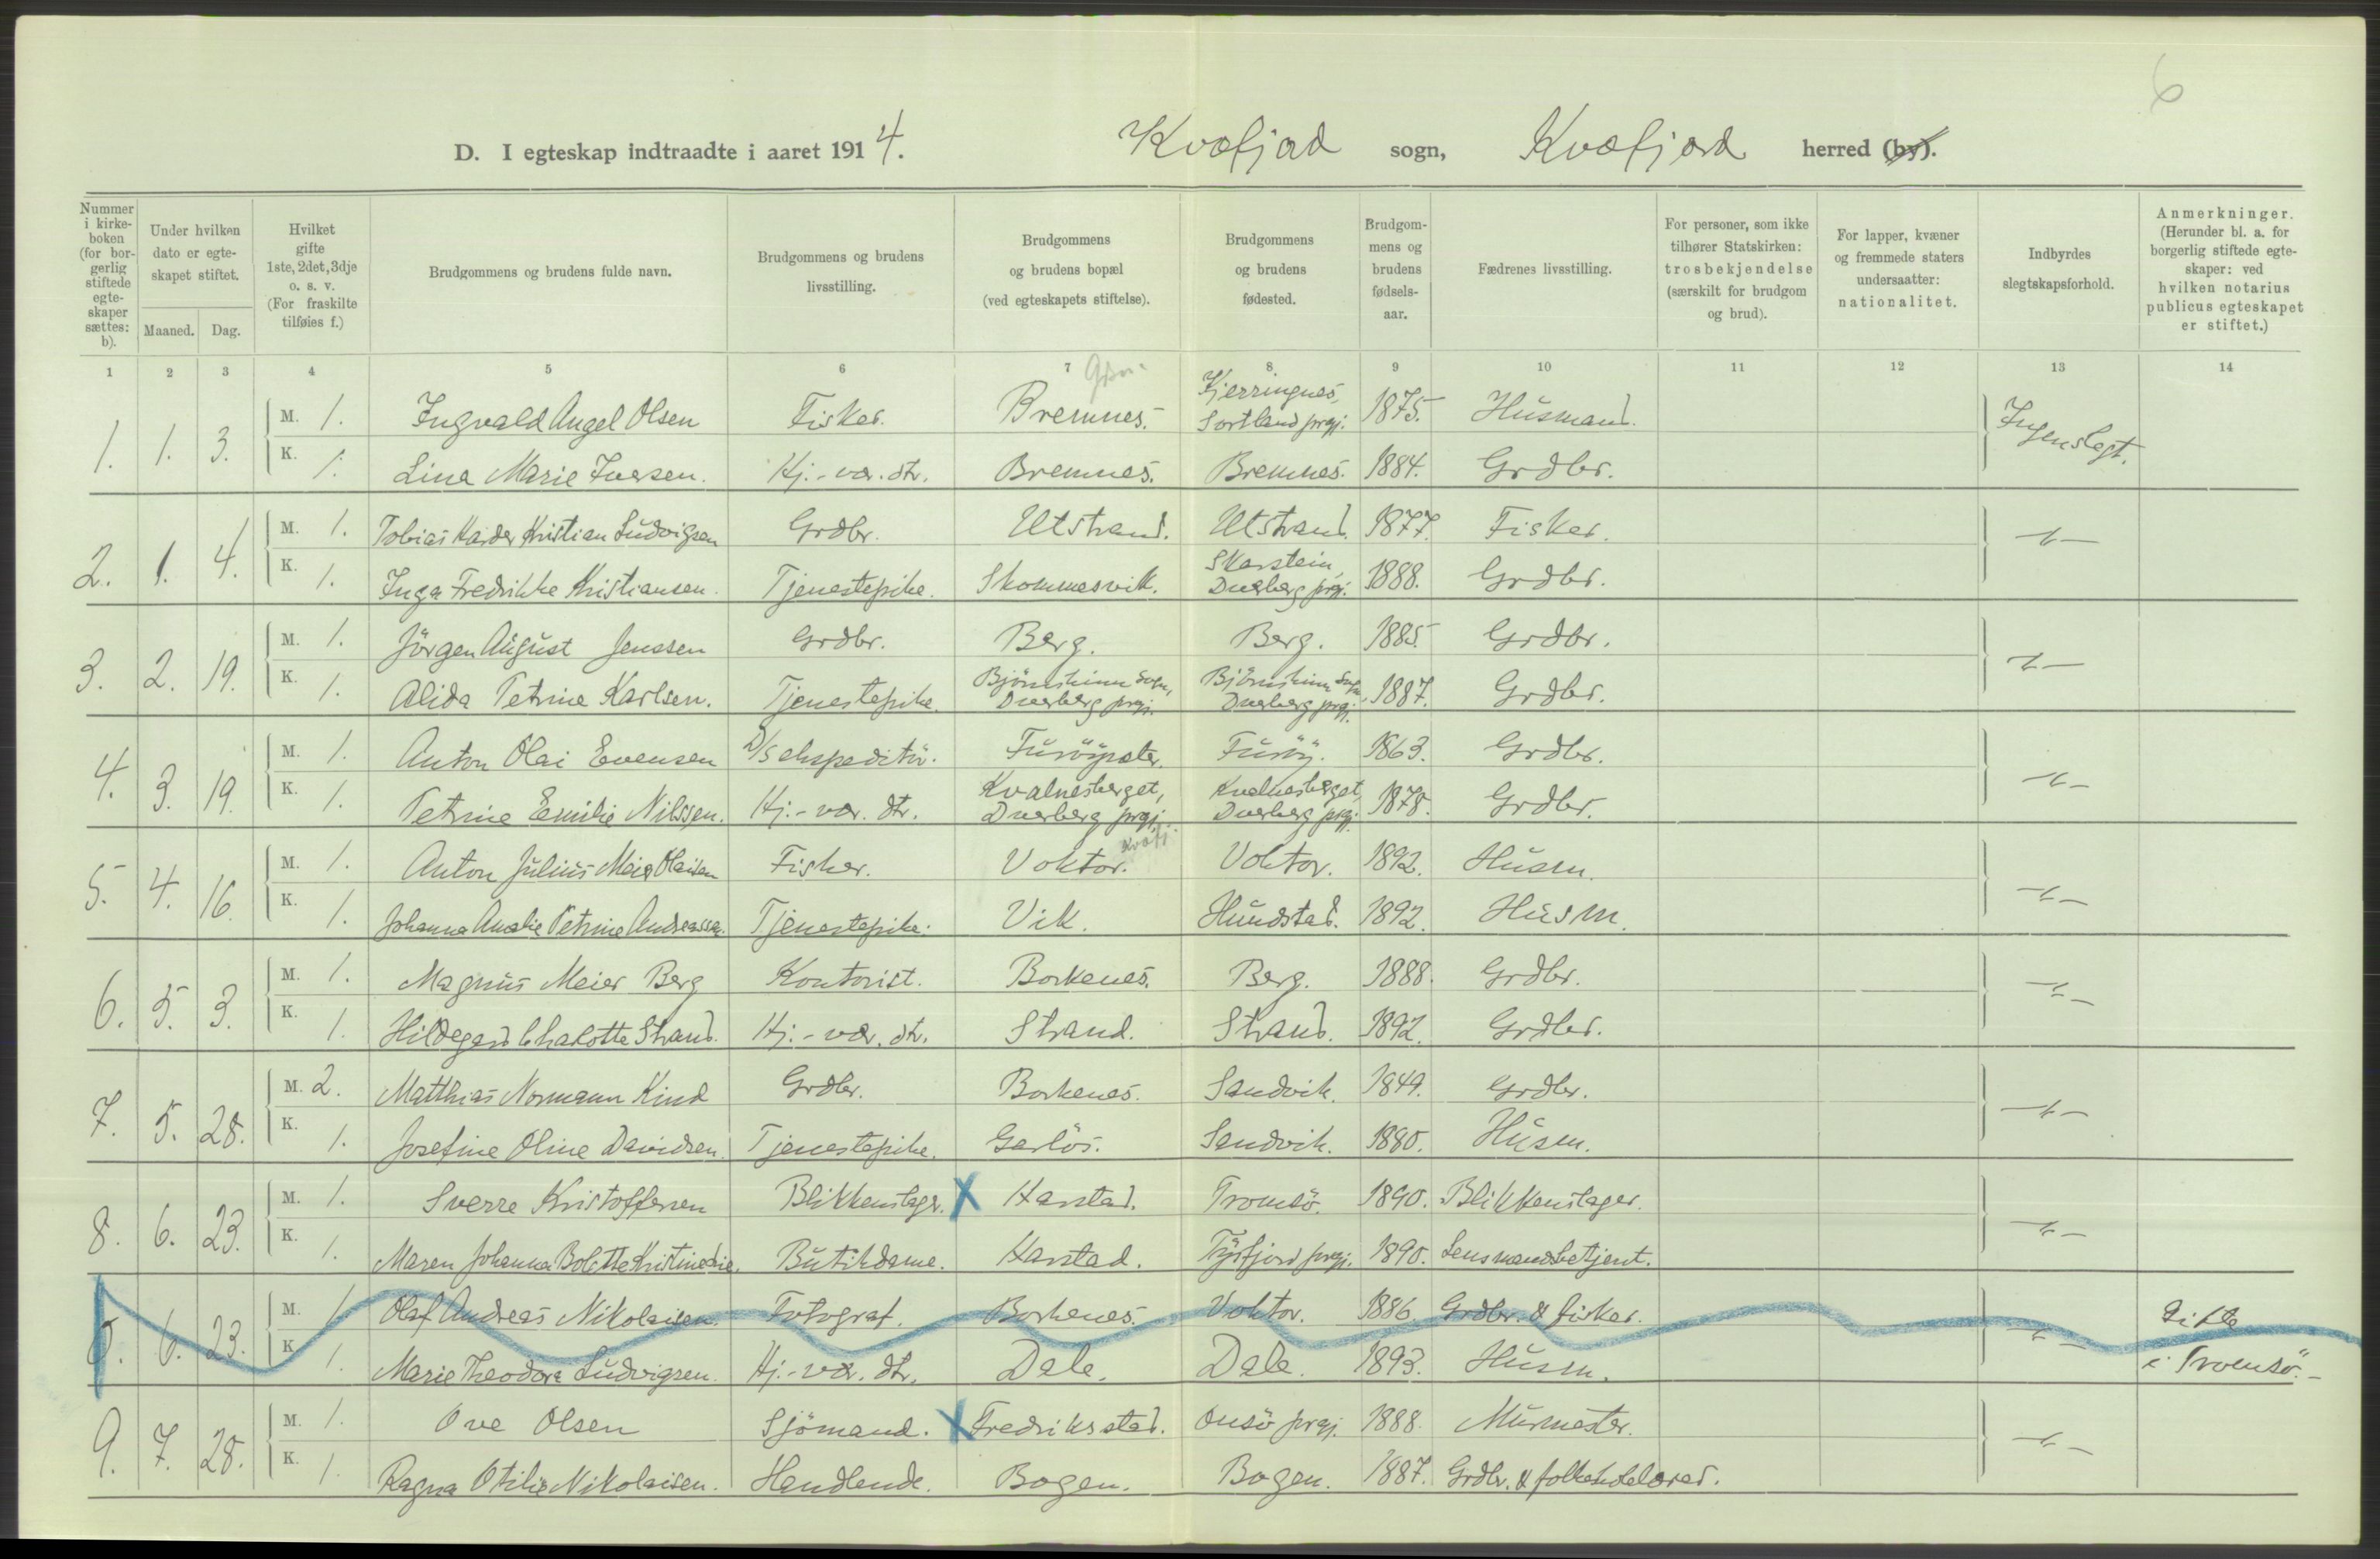 6
D. I egteskap indtraadte i aaret 1914. Kvæfjord sogn, Kvæfjord herred (by).
Nummer i kirkeboken (for borgerlig stiftede egteskaper sættes: b).
Under hvilken dato er egteskapet stiftet.
Maaned. Dag.
Hvilket gifte 1ste, 2det, 3dje o. s. v. (For fraskilte tilføies f.)
Brudgommens og brudens fulde navn.
Brudgommens og brudens livsstilling.
Brudgommens og brudens bopæl (ved egteskapets stiftelse).
Brudgommens og brudens fødested.
Brudgommens og brudens fødselsaar.
Fædrenes livsstilling.
For personer, som ikke tilhører Statskirken: trosbekjendelse (særskilt for brudgom og brud).
For lapper, kvæner og fremmede staters undersaatter: nationalitet.
Indbyrdes slegtskapsforhold.
Anmerkninger. (Herunder bl. a. for borgerlig stiftede egteskaper: ved hvilken notarius publicus egteskapet er stiftet.)
1 2 3 4 5 6 7 8 9 10 11 12 13 14
1. 1. 3. M. 1. Ingvald Angel Olsen Fisker. Bremnes. Kjerringnes, Sortland prgj. 1875. Husmand. Ingen slegt.
K. 1. Lina Marie Iversen. Hj.-vær. dtr. Bremnes. Bremnes. 1884. Grdbr.
2. 1. 4. M. 1. Tobias Harder Kristian Ludvigsen Grdbr. Utstrand. Utstrand. 1877. Fisker. -"-
K. 1. Inga Fredrikke Kristiansen. Tjenestepike. Skommesvik. Skarstein, Dverberg prgj. 1888. Grdbr.
3. 2. 19. M. 1. Jörgen August Jenssen Grdbr. Berg. Berg. 1885. Grdbr. -"-
K. 1. Alida Petrine Karlsen. Tjenestepike. Björnskinn sogn, Dverberg prgj. Björnskinn sogn, Dverberg prgj. 1887. Grdbr.
4. 3. 19. M. 1. Anton Olai Evensen D/s ekspeditör. Fusöy. 1863. Grdbr. -"-
K. 1. Petrine Emilie Nilssen. Hj.-vær. dtr. Kvalnesberget, Dverberg prgj. Kvalnesberget, Dverberg prgj. 1878. Grdbr.
5. 4. 16. M. 1. Anton Julius Meier Olaisen Fisker. Voktor. Kvæfj. Voktor. 1892. Husm. -"-
K. 1. Johanna Amalie Petrine Andreassen. Tjenestepike. Vik. Hundstad. 1892. Husm.
6. 5. 3. M. 1. Magnus Meier Berg Kontorist. Borkenes. Berg. 1888. Grdbr. -"-
K. 1. Hildegard Charlotte Strand. Hj.-vær. dtr. Strand. Strand. 1892. Grdbr.
7. 5. 28. M. 2. Matthias Normann Kind Grdbr. Borkenes. Sandvik. 1849. Grdbr. -"-
K. 1. Josefine Oline Davidsen. Tjenestepike. Gaslös. Sandvik. 1880. Husm.
8. 6. 23. M. 1. Sverre Kristoffersen Blikkenslager. X Harstad. Tromsö. 1890. Blikkenslager. -"-
K. 1. Maren Johanna Bolette Butikdame. Harstad. Tysfjord prgj. 1890. Lensmandsbetjent.
6. 23. M. 1. Olaf Andreas Nikolaisen. Fotograf. Borkenes. Voktor. 1886. Grdbr. & fisker. -"- Gifte i Tromsö.-
K. 1. Marie Theodora Ludvigsen. Hj.-vær. dtr. Dale. Dale. 1893. Husm.
9. 7. 28. M. 1. Ove Olsen Sjömand. X Fredriksstad. Onsö prgj. 1888. Murmester. -"-
K. 1. Ragna Otilie Nikolaisen. Handlende. Bogen. Bogen. 1887. Grdbr. & folkeskolelærer.